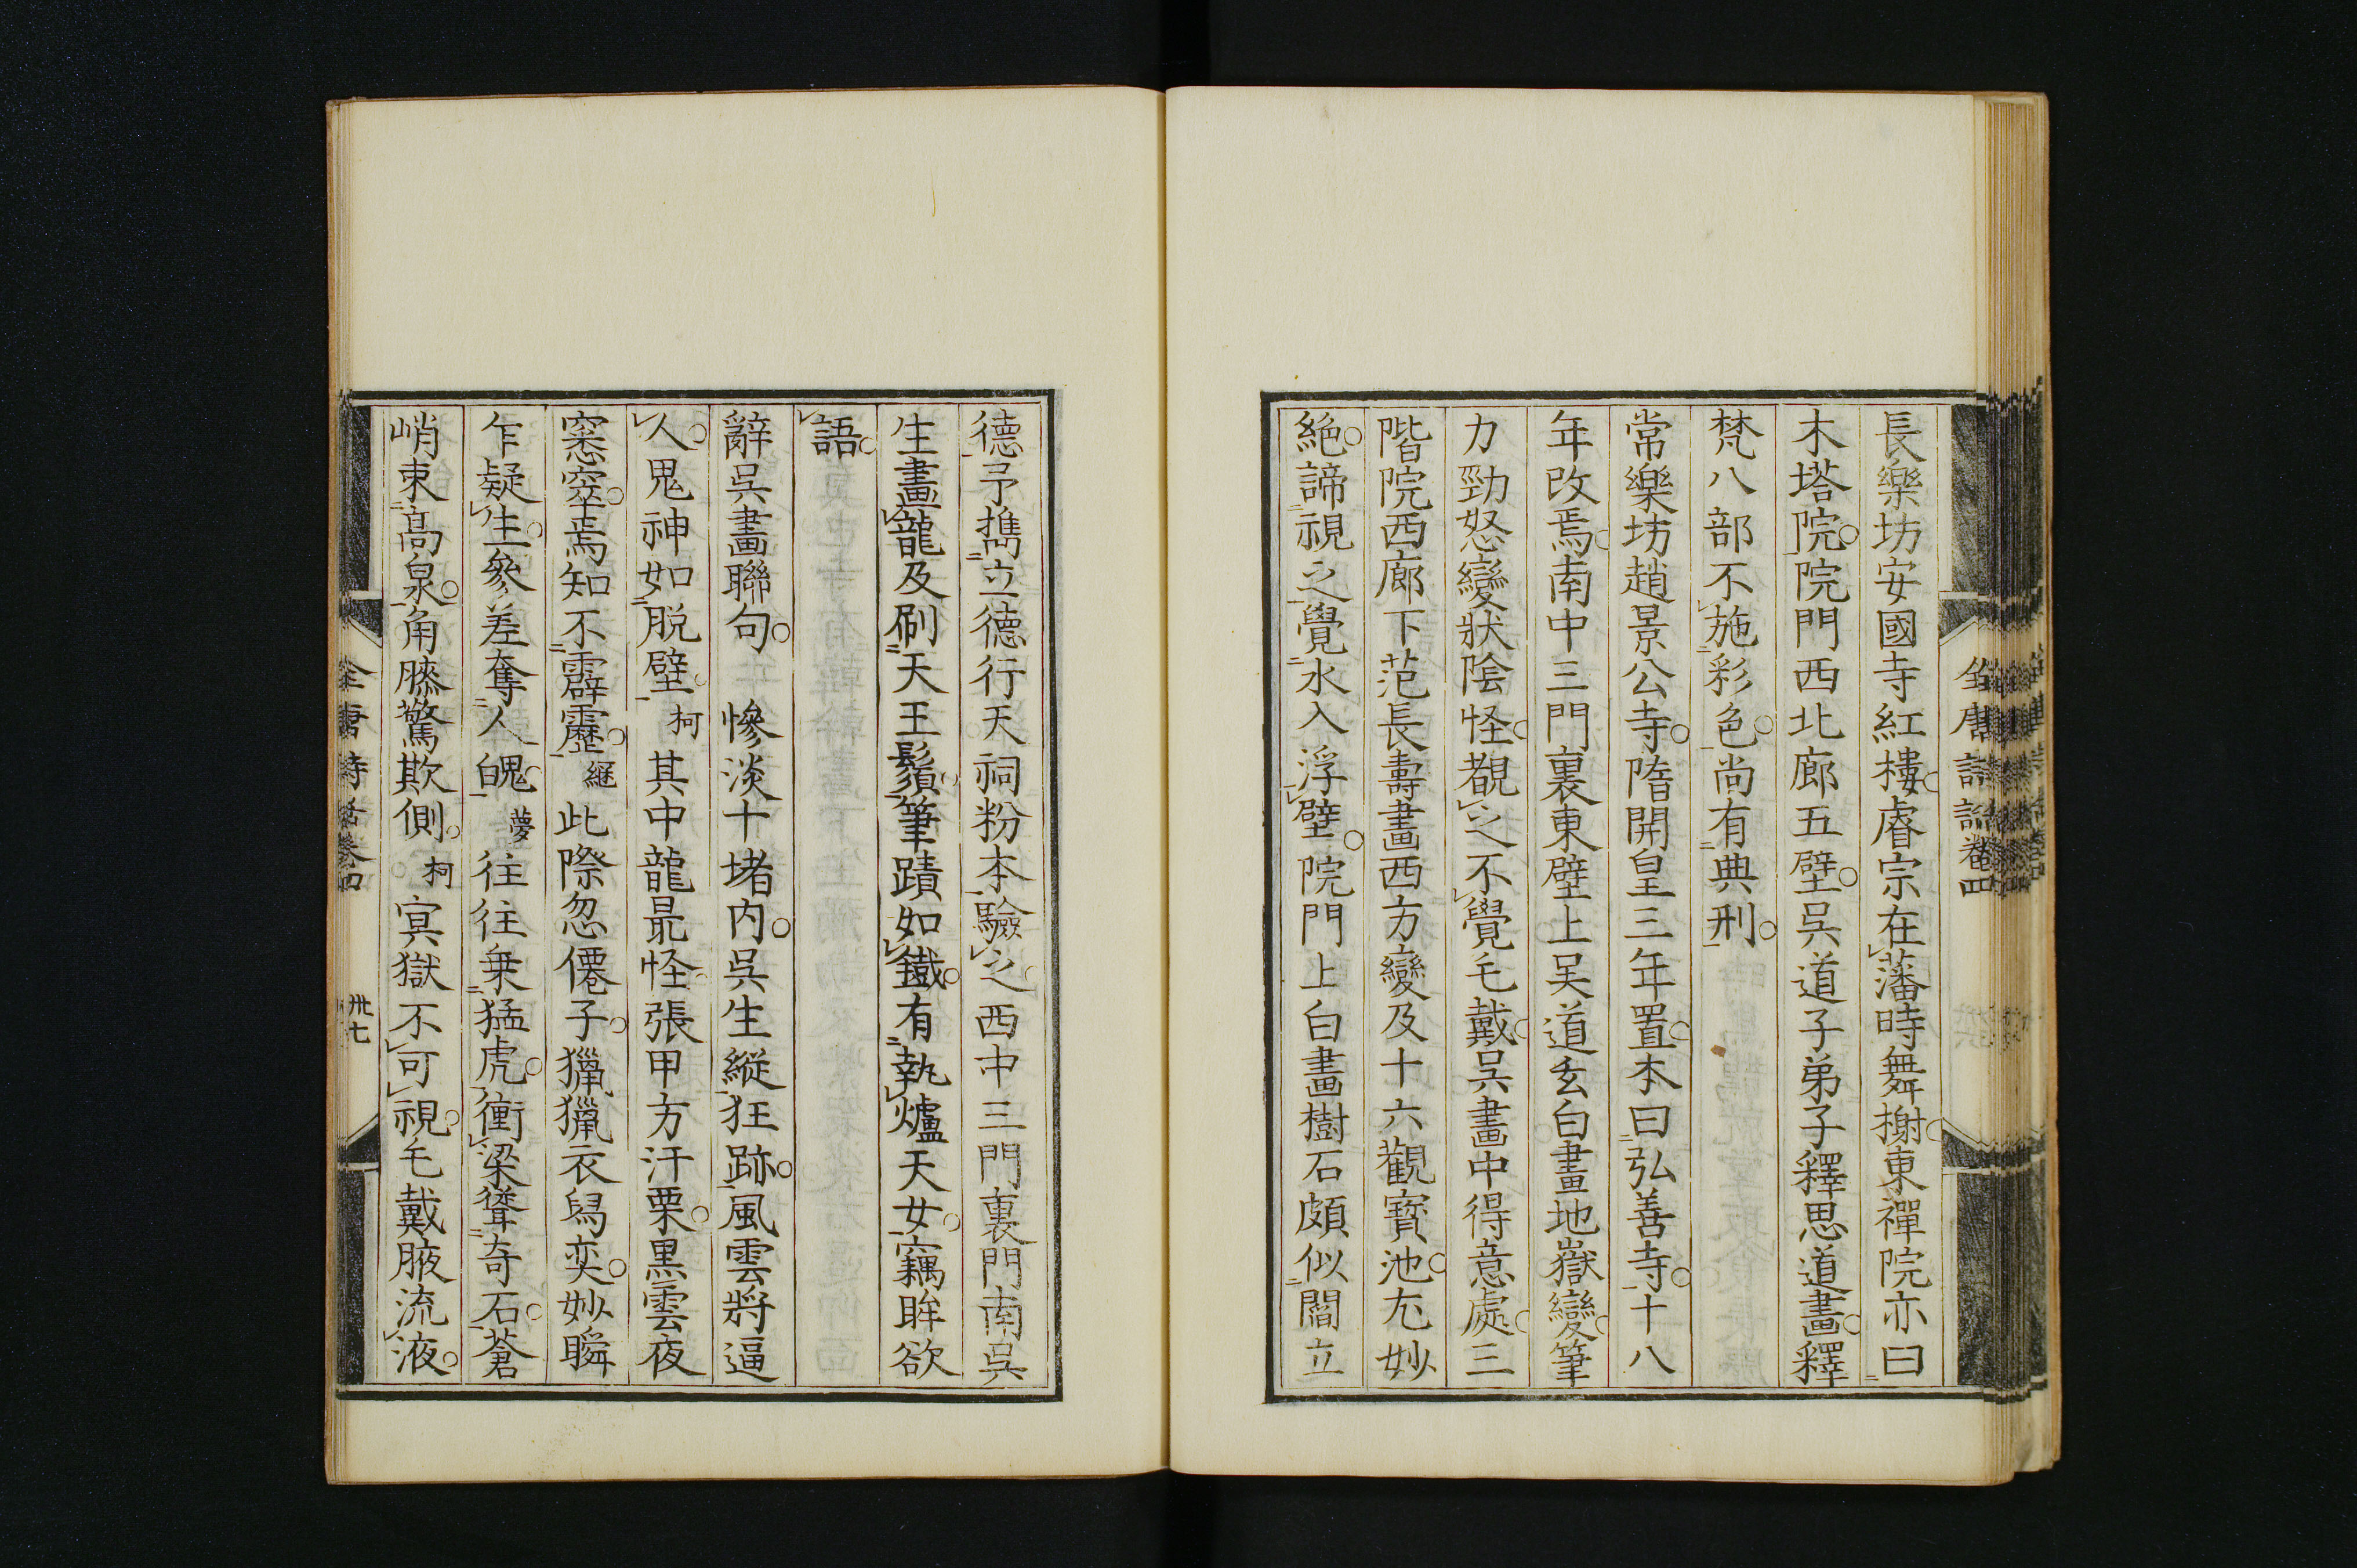 全唐詩話卷四
長樂坊安國寺紅樓睿宗在藩時舞榭東禪院亦曰
木塔院院門西北廊五壁吳道子弟子釋思道畫釋
梵八部不施彩色尚有典刑
常樂坊趙景公寺隋開皇三年置本曰弘善寺十八
年改焉南中三門裏東壁上吳道玄白畫地嶽變筆
力勁怒變狀陰怪覩之不覺毛戴吳畫中得意處三
階院西廊下范長壽畫西方變及十六觀寳池尤妙
絶諦視之覺水入浮壁院門上白畫樹石頗似閻立
德予攜立德行天祠粉本驗之西中三門裏門南吳
生畫龍及刷天王鬚筆蹟如鐵有執爐天女竊眸欲
語
辭吳畫聯句 慘淡十堵內吳生縱狂跡風雲將逼
人鬼神如脱壁柯其中龍最怪張甲方汗栗黒雲夜
窸窣焉知不霹靂繼此際忽僊子獵獵衣舄奕妙瞬
乍疑生參差奪人魄夢往往乗猛虎衝梁聳奇石蒼
峭束髙泉角膝驚欺側柯冥獄不可視毛戴腋流液
全唐詩話卷四 卅七